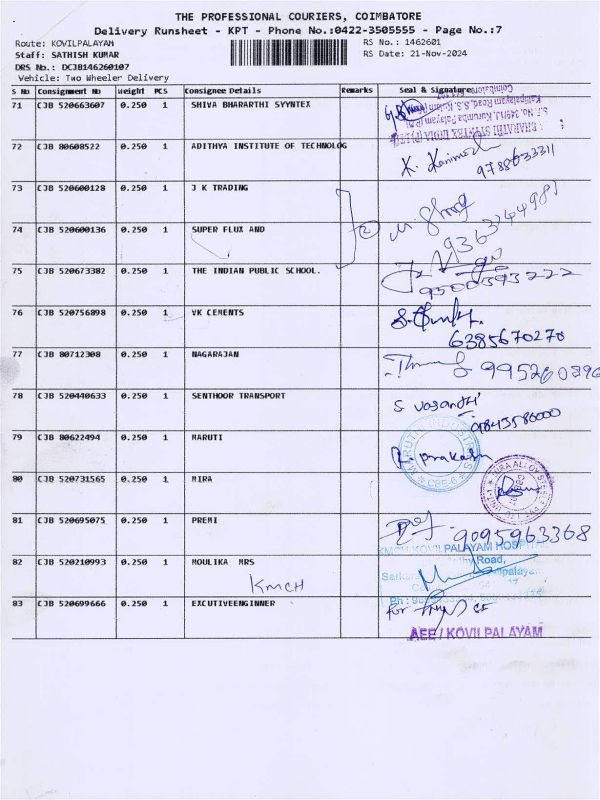 THE PROFESSIONAL COURIERS, COIMBATORE
Delivery Runsheet - KPT - Phone No.:0422-3505555 - Page No.:7
Route: KOVILPALAYAM RS No.: 1462601
Staff: SATHISH KUMAR RS Date: 21-Nov-2024
DRS No.: DCJB146260107
Vehicle: Two Wheeler Delivery
S No Consignment No Weight PCS Consignee Details Remarks Seal & Signature
71 CJB 520663607 0.250 1 SHIVA BHARARTHI SYYNTEX
72 CJB 80608522 0.250 1 ADITHYA INSTITUTE OF TECHNOLOG
9788633311
73 CJB 520600128 0.250 1 J K TRADING
2
9363244981
74 CJB 520600136 0.250 1 SUPER FLUX AND
75 CJB 520673382 0.250 1 THE INDIAN PUBLIC SCHOOL.
9500593222
76 CJB 520756898 0.250 1 VK CEMENTS
6385670270
77 CJB 80712308 0.250 1 NAGARAJAN
995260896
78 CJB 520440633 0.250 1 SENTHOOR TRANSPORT
S Vasanthi
9843580000
79 CJB 80622494 0.250 1 MARUTI
MARUTI INDUSTRIES
CBE-6
R. Prakash
80 CJB 520731565 0.250 1 MIRA
MIRA ALLOY
81 CJB 520695075 0.250 1 PREMI
9095963368
KMCH KOVILPALAYAM HOSPITAL
82 CJB 520210993 0.250 1 MOULIKA MRS
KMCH
Road,
83 CJB 520699666 0.250 1 EXCUTIVEENGINNER
for
AEE / KOVILPALAYAM